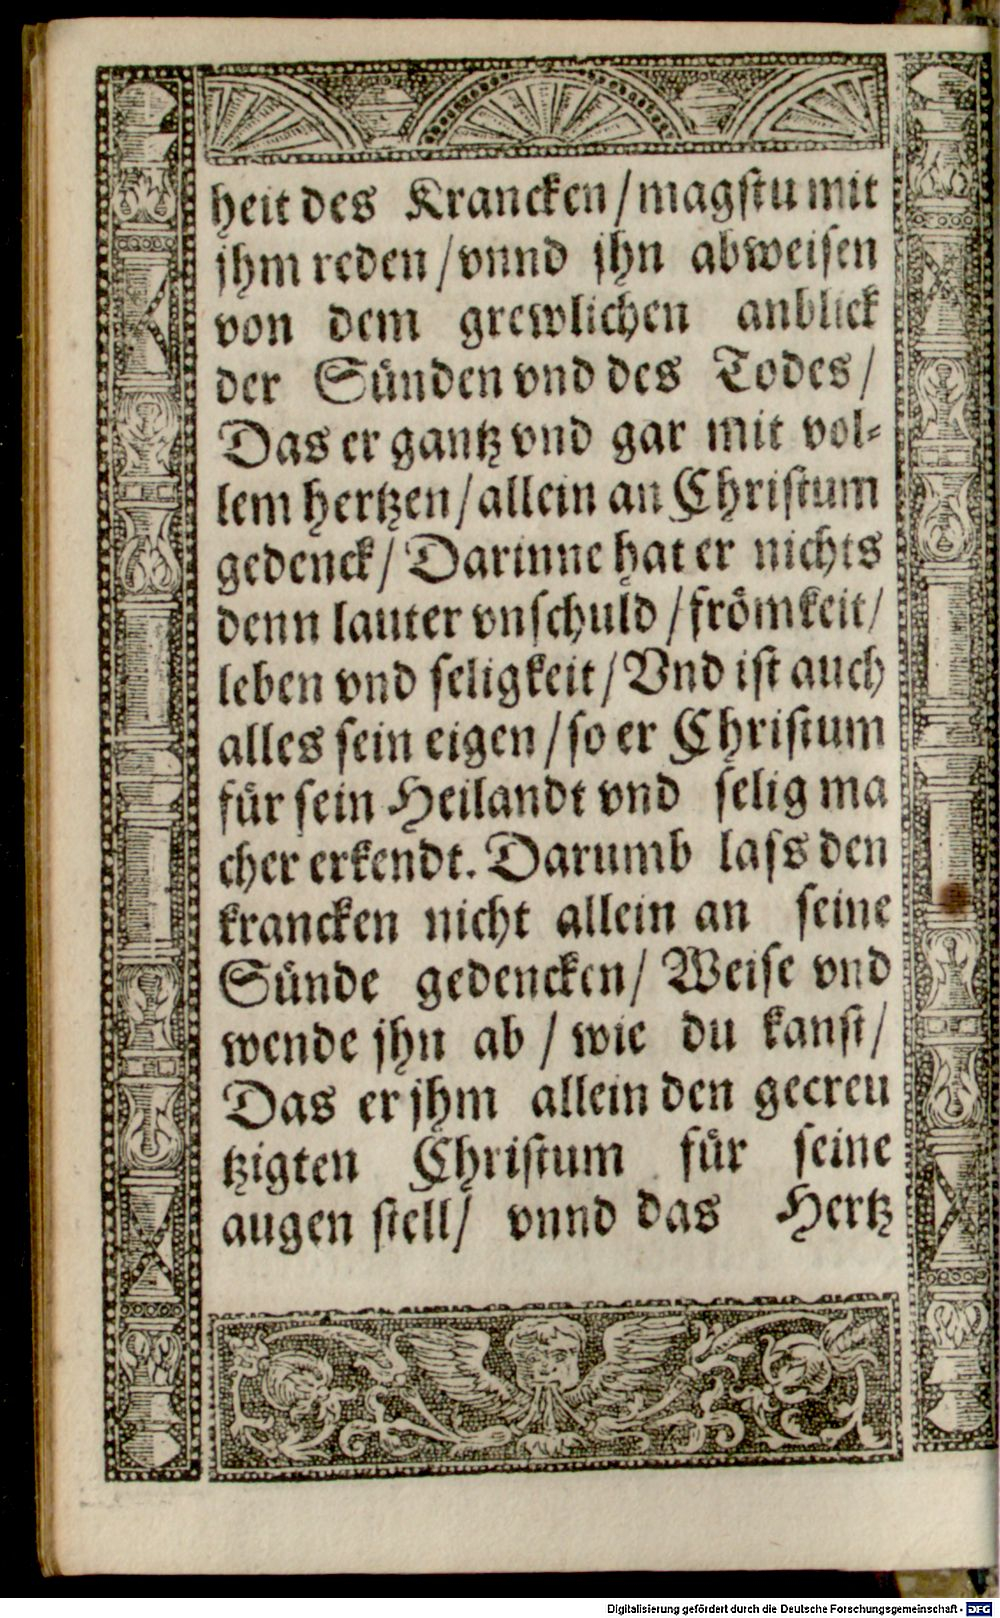 heit des Krancken / magstu mit
jhm reden / vnnd jhn abweisen
von dem grewlichen anblick
der Sünden vnd des Todes /
Das er gantz vnd gar mit vol⸗
lem hertzen / allein an Christum
gedenck / Darinne hat er nichts
denn lauter vnschuld / frömkeit /
leben vnd seligkeit / Vnd ist auch
alles sein eigen / so er Christum
für sein Heilandt vnd selig ma
cher erkendt. Darumb lass den
krancken nicht allein an seine
Sünde gedencken / Weise vnd
wende jhn ab / wie du kanst /
Das er jhm allein den gecreu
tzigten Christum für seine
augen stell / vnnd das Hertz
Digitalisierung gefördert durch die Deutsche Forschungsgemeinschaft - DFG